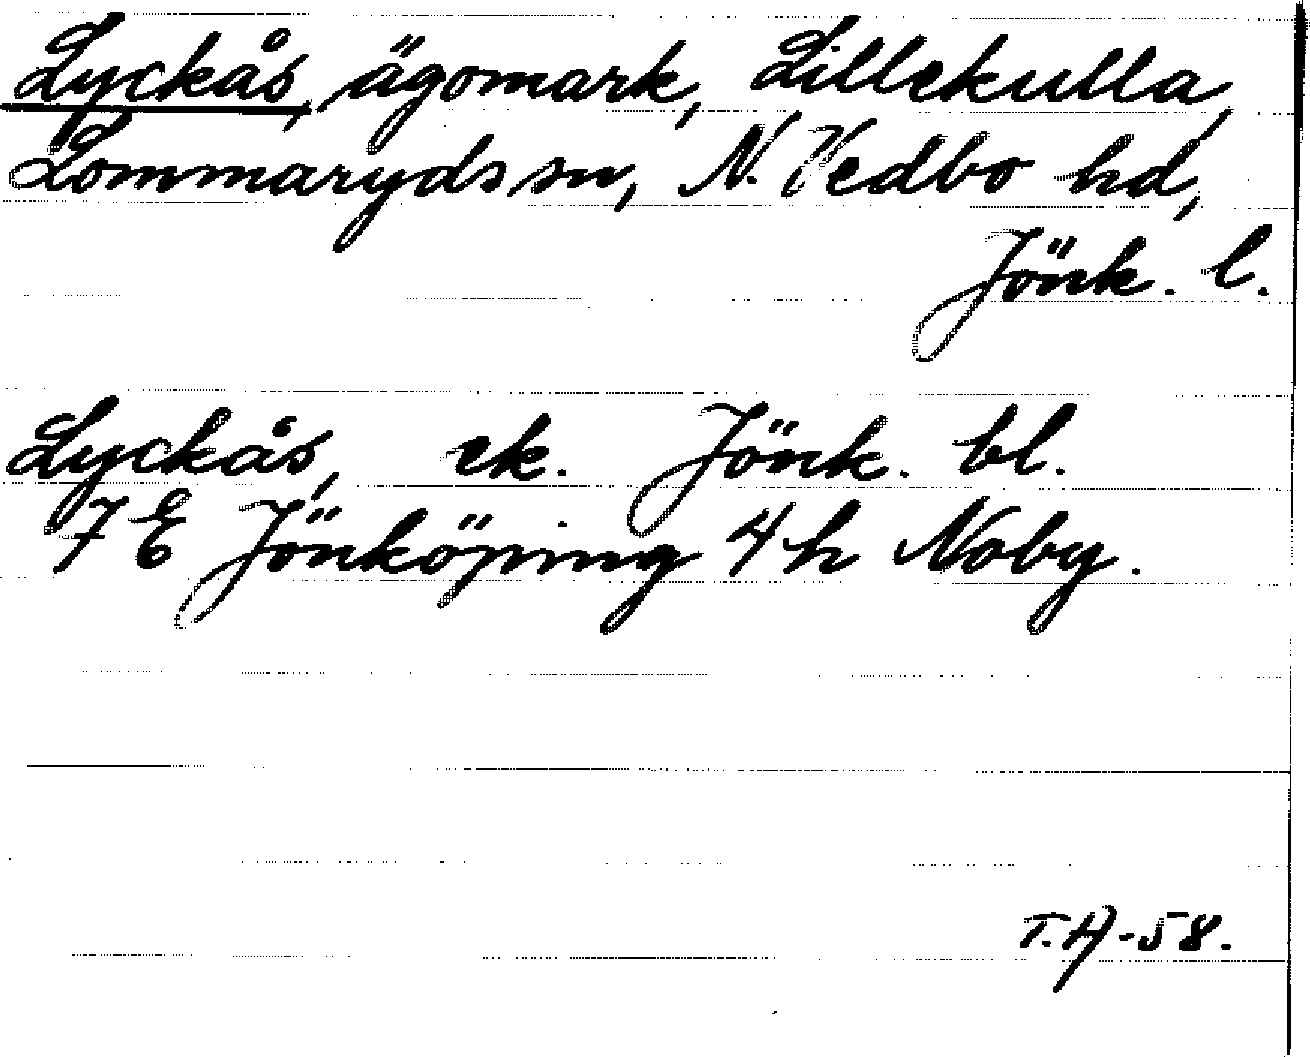 Lyckås, ägomark, Lillekulla,
Lommaryds sn, N. Vedbo hd,
Jönk. l.
Lyckås, ek. Jönk. bl.
7 E Jönköping 4 h Noby.
T.H-58.